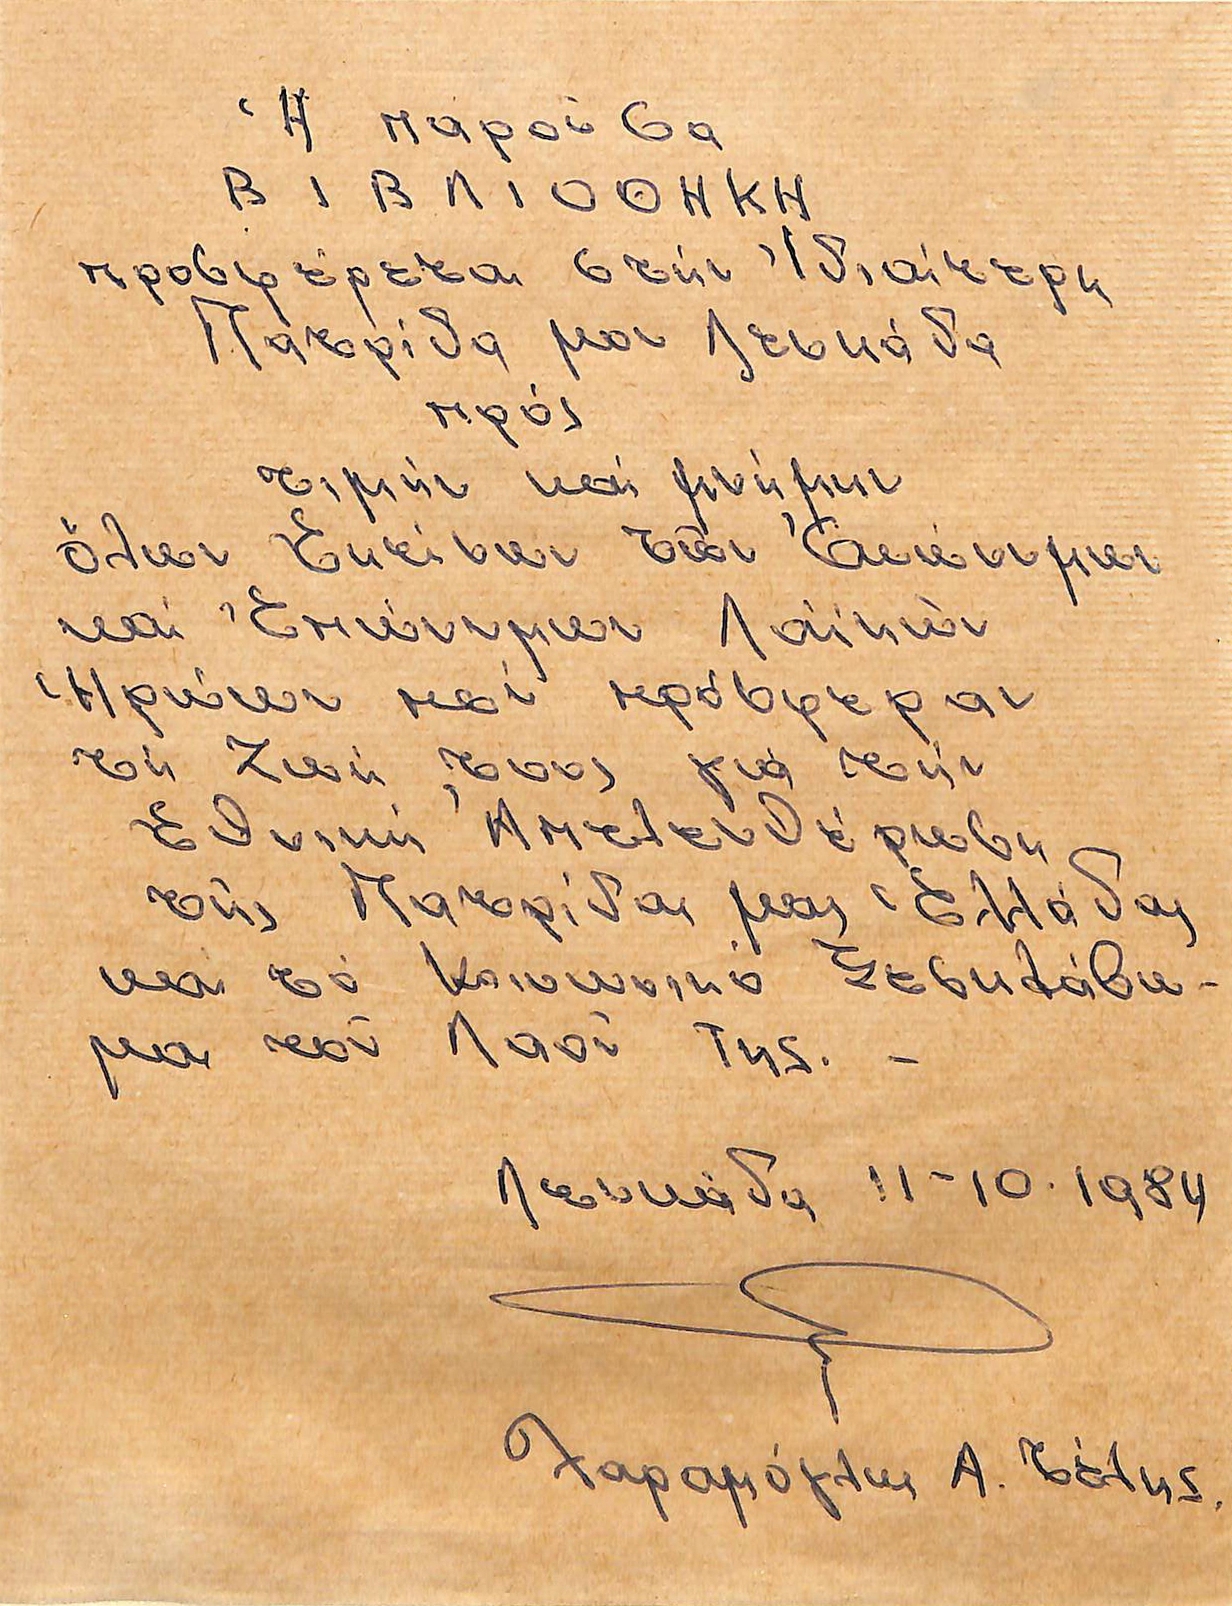 Ἡ παροῦσα
ΒΙΒΛΙΟΘΗΚΗ
προσφέρεται στήν Ἰδιαίτερη
Πατρίδα μου Λευκάδα
πρός
τιμήν καί μνήμην
ὅλων Ἐκείνων τῶν Ἀνωνύμων
καί Ἐπωνύμων Λαϊκῶν
Ἡρώων πού πρόσφεραν
τή Ζωή τους γιά τήν
Ἐθνική Ἀπελευθέρωση
τῆς Πατρίδας μας Ἑλλάδας
καί τό Κοινωνικό Ξεσκλάβω-
μα τοῦ Λαοῦ Της. -
Λευκάδα 11-10-1984
Χαραμόγλης Α. Τέλης.